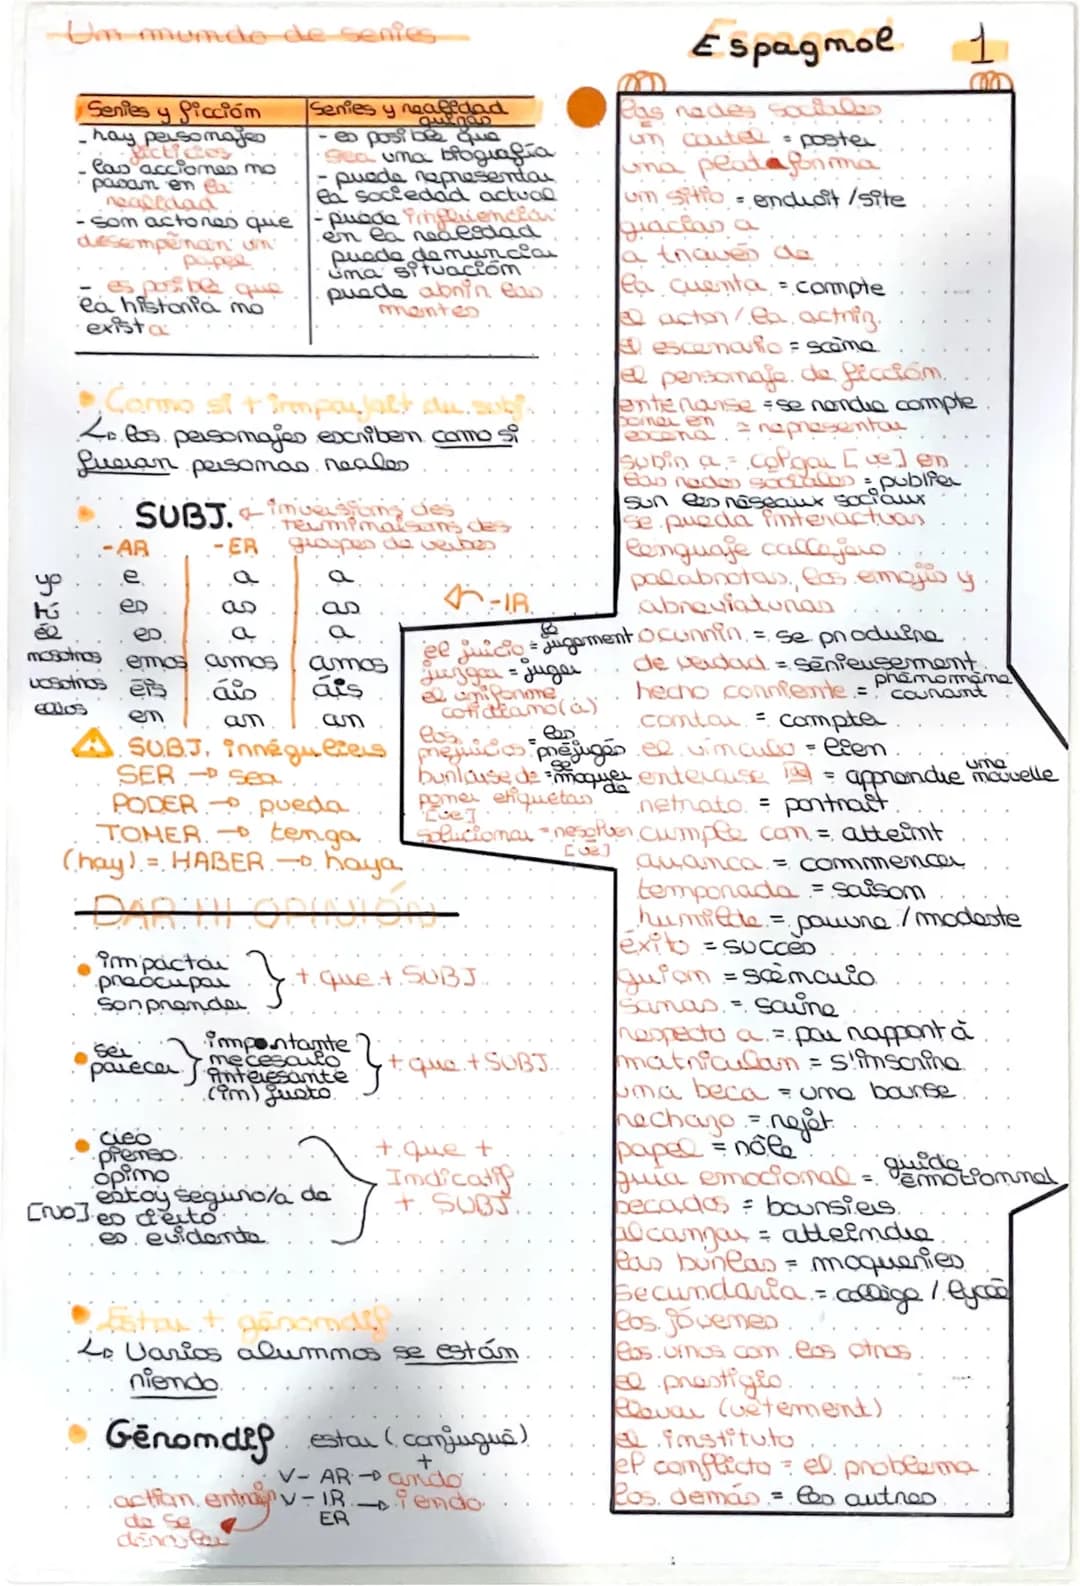 Un mundo de series
Espagnol 1
Series y ficción
- hay personajes
ficticios
- las acciones no
pasan en la
realidad
- son actores que
desempeñan un
papel
- es posible que
la historia no
exista
Series y realidad
- es posible que
sea una biografía
- puede representar
la sociedad actual
- puede influenciar
en la realidad
puede denunciar
una situación
puede abrir las
mentes
Como si + imparfait du subj.
↳ los personajes escriben como si
fueran personas reales
SUBJ. ← inversions des
terminaisons des
groupes de verbes
-AR -ER ← -IR
yo e a a
tú es as as
él es a a
nosotros emos amos amos
vosotros éis áis áis
ellos en an an
⚠ SUBJ. irréguliers
SER → sea
PODER → pueda
TONER → tenga
(hay) = HABER → haya
DAR MI OPINIÓN
impactar
preocupar
sorprender
+ que + SUBJ.
ser
parecer
importante
necesario
interesante
(in) justo
+ que + SUBJ.
creo
pienso
opino
estoy seguro/a de
[NO] es cierto
es evidente
+ que +
Indicatif
+ SUBJ.
Estar + gérondif
↳ Varios alumnos se están
riendo
Gérondif estar (conjugué)
+
V- AR → ando
V- IR → iendo
ER
action entrain
de se
dérouler
las redes sociales
un cartel = poster
una plataforma
un sitio = endroit / site
gracias a
a través de
la cuenta = compte
el actor / la actriz
el escenario = scène
el personaje de ficción
enterarse = se rendre compte
poner en
escena = representar
subir a = colgar [ue] en
las redes sociales = publier
sur les réseaux sociaux
se puede interactuar
lenguaje callejero
palabrotas, los emojis y
abreviaturas
el juicio = le jugement
juzgar = juger
el uniforme
cotidiano(a)
los
prejuicios = les préjugés
burlarse de = se moquer de
poner etiquetas
[ue]
solucionar = resolver
[ue]
ocurrir = se produire
de verdad = sérieusement
hecho corriente = phénomène
courant
contar = compter
el vínculo = lien
enterarse = apprendre une nouvelle
retrato = portrait
cumple con = atteint
avanca = commencer
temporada = saison
humilde = pauvre / modeste
éxito = succès
guion = scénario
sanas = saine
respecto a = par rapport à
matriculan = s'inscrire
una beca = une bourse
rechazo = rejet
papel = rôle
guía emocional = guide
émotionnal
becados = boursiers
alcanzar = atteindre
las burlas = moqueries
secundaria = collège / lycée
los jóvenes
los unos con los otros
el prestigio
llevar (vêtement)
el instituto
el conflicto = el problema
los demás = les autres